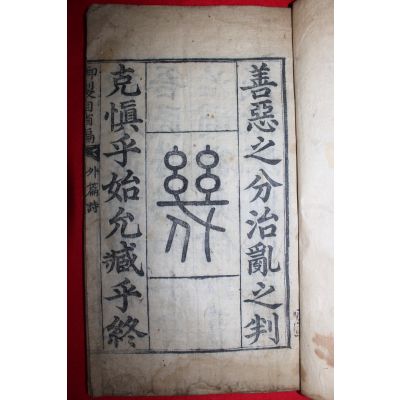 善惡之分治亂之判
幾
克愼乎始允臧乎終
御製自省編 外篇詩